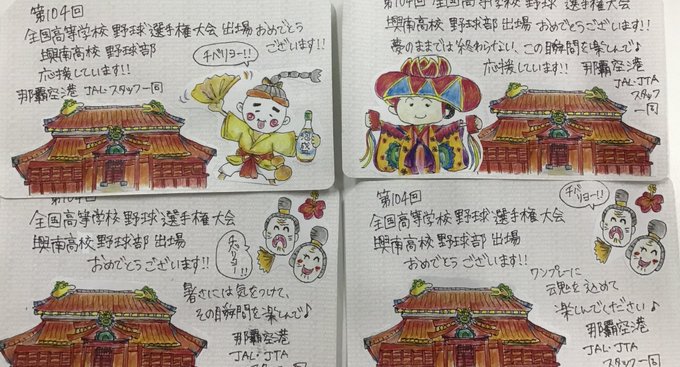 第104回
全国高等学校 野球 選手権 大会 出場 おめでとう
ございます!!
興南高校 野球部
応援しています!!
チバリヨー!!
那覇空港
JALスタッフ一同
第104回
全国高等学校 野球 選手権 大会
興南高校 野球部 出場 おめでとうございます!!
夢のままでは終わらない、この瞬間を楽しんで♪
応援しています!!
那覇空港
JAL・JTA
スタッフ
一同
第104回
全国高等学校 野球 選手権 大会
興南高校 野球部 出場
おめでとう ございます!!
チバリヨー!!
暑さには気をつけて、
その瞬間を楽しんで♪
那覇空港
JAL・JTA
スタッフ一同
第104回
チバリヨー!!
全国高等学校 野球 選手権 大会
興南高校 野球部 出場
おめでとう ございます!!
ワンプレーに
魂を込めて
楽しんでください♪
那覇空港
JAL・JTA
スタッフ一同